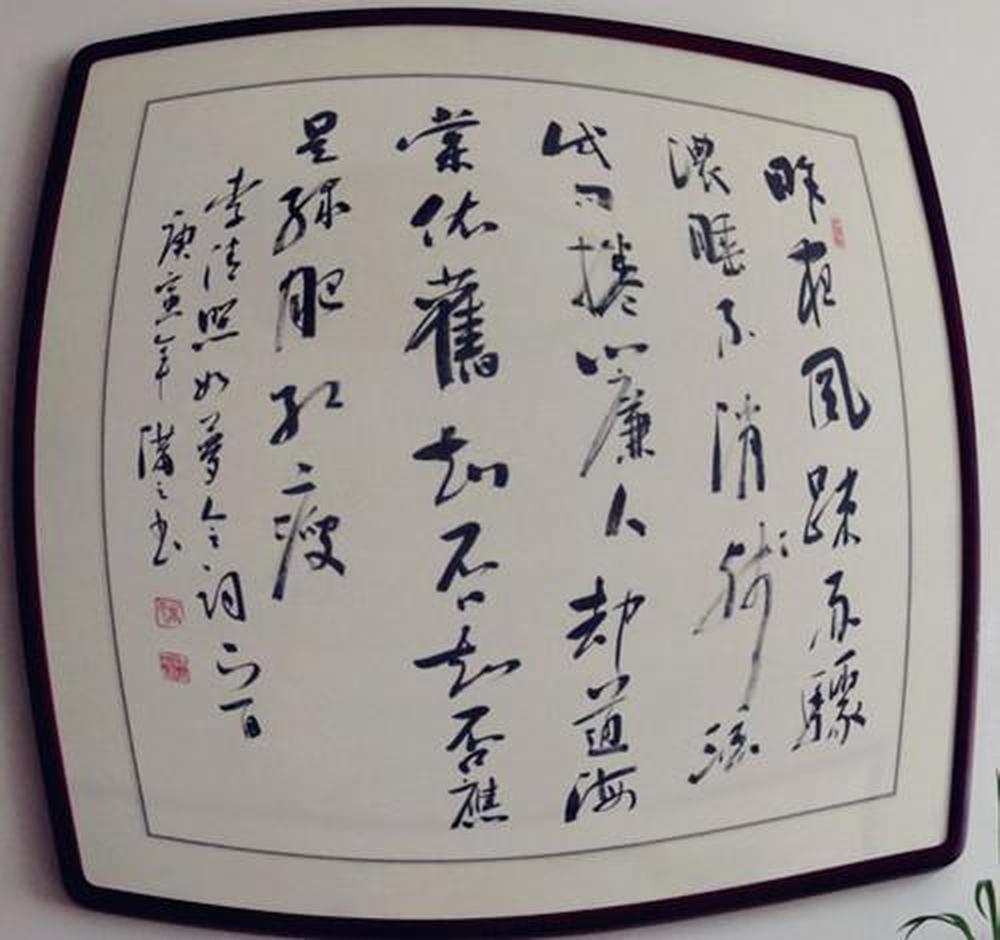 昨夜風疎雨驟
濃睡不消殘酒
试问捲簾人却道海
棠依舊知否知否應
是綠肥紅瘦
李清照如夢令词一首
庚寅年之书